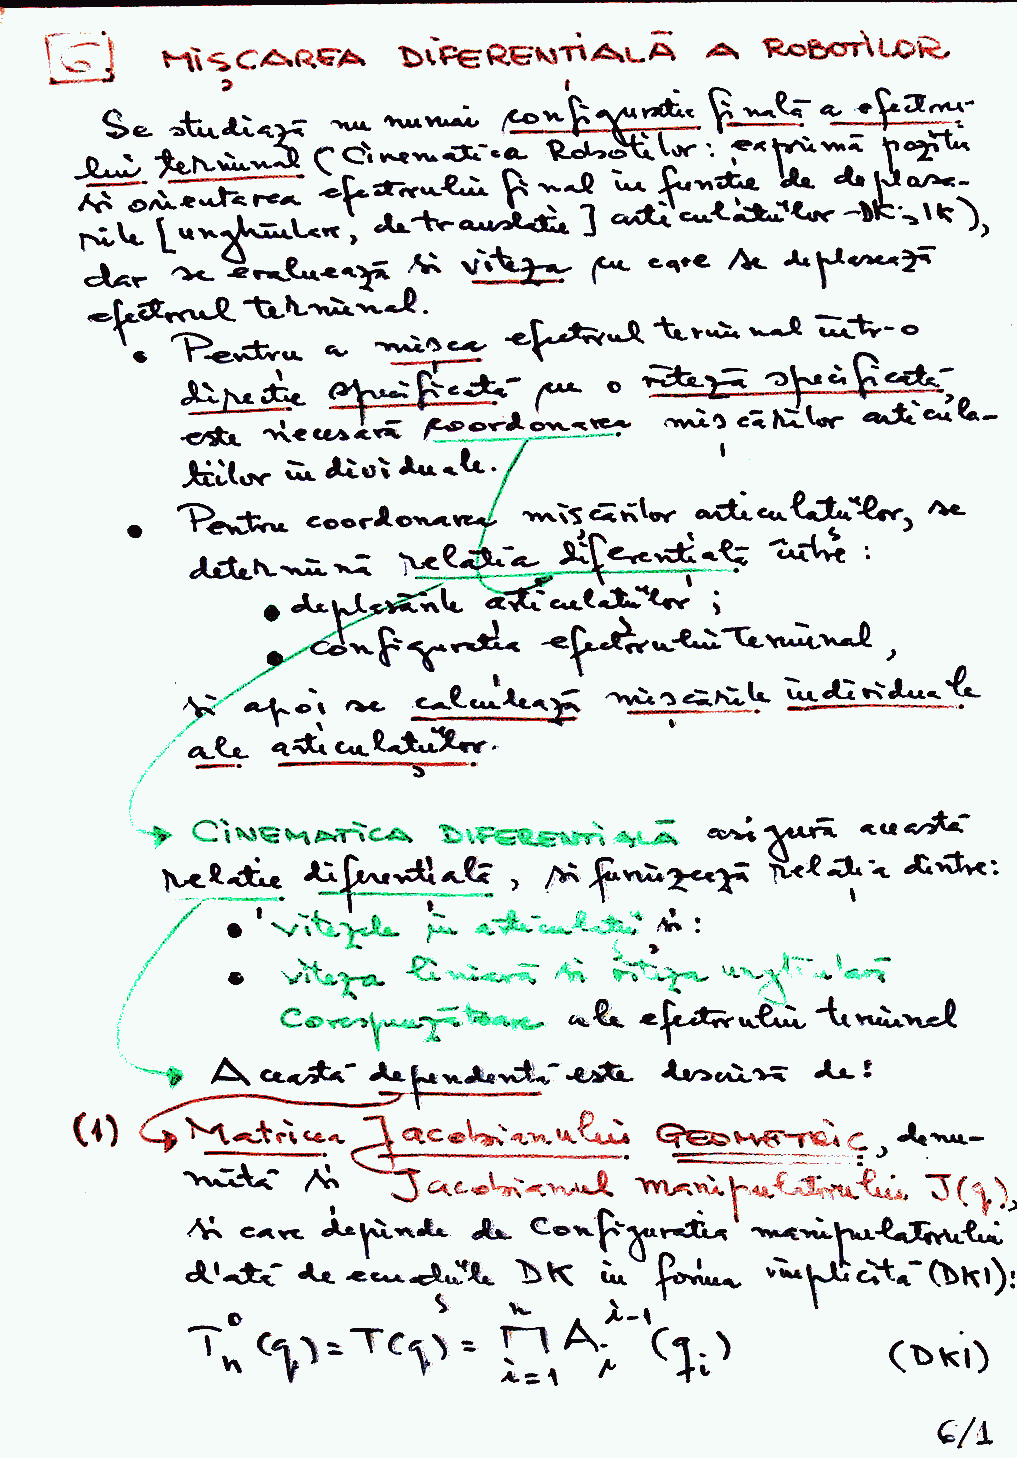 6 MIȘCAREA DIFERENȚIALĂ A ROBOȚILOR
Se studiază nu numai configurația finală a efectoru-
lui terminal (Cinematica Roboților: exprimă poziția
și orientarea efectorului final în funcție de deplasă-
rile [unghiulare, de translație] articulațiilor - DK; IK),
dar se evaluează și viteza cu care se deplasează
efectorul terminal.
• Pentru a mișca efectorul terminal într-o
direcție specificată cu o viteză specificată,
este necesară coordonarea mișcărilor articula-
țiilor individuale.
• Pentru coordonarea mișcărilor articulațiilor, se
determină relația diferențială între:
• deplasările articulațiilor;
• configurația efectorului terminal,
și apoi se calculează mișcările individuale
ale articulațiilor.
→ CINEMATICA DIFERENȚIALĂ asigură această
relație diferențială, și furnizează relația dintre:
• vitezele în articulații și:
• viteza liniară și viteza unghiulară
corespunzătoare ale efectorului terminal
→ Această dependență este descrisă de:
(1) → Matricea Jacobianului GEOMETRIC, denu-
mită și Jacobianul manipulatorului J(q),
și care depinde de configurația manipulatorului
dată de ecuațiile DK în forma implicită (DKI):
T_n^0 (q) = T(q) = ∏_{i=1}^{n} A_i^{i-1} (q_i) (DKI)
6/1